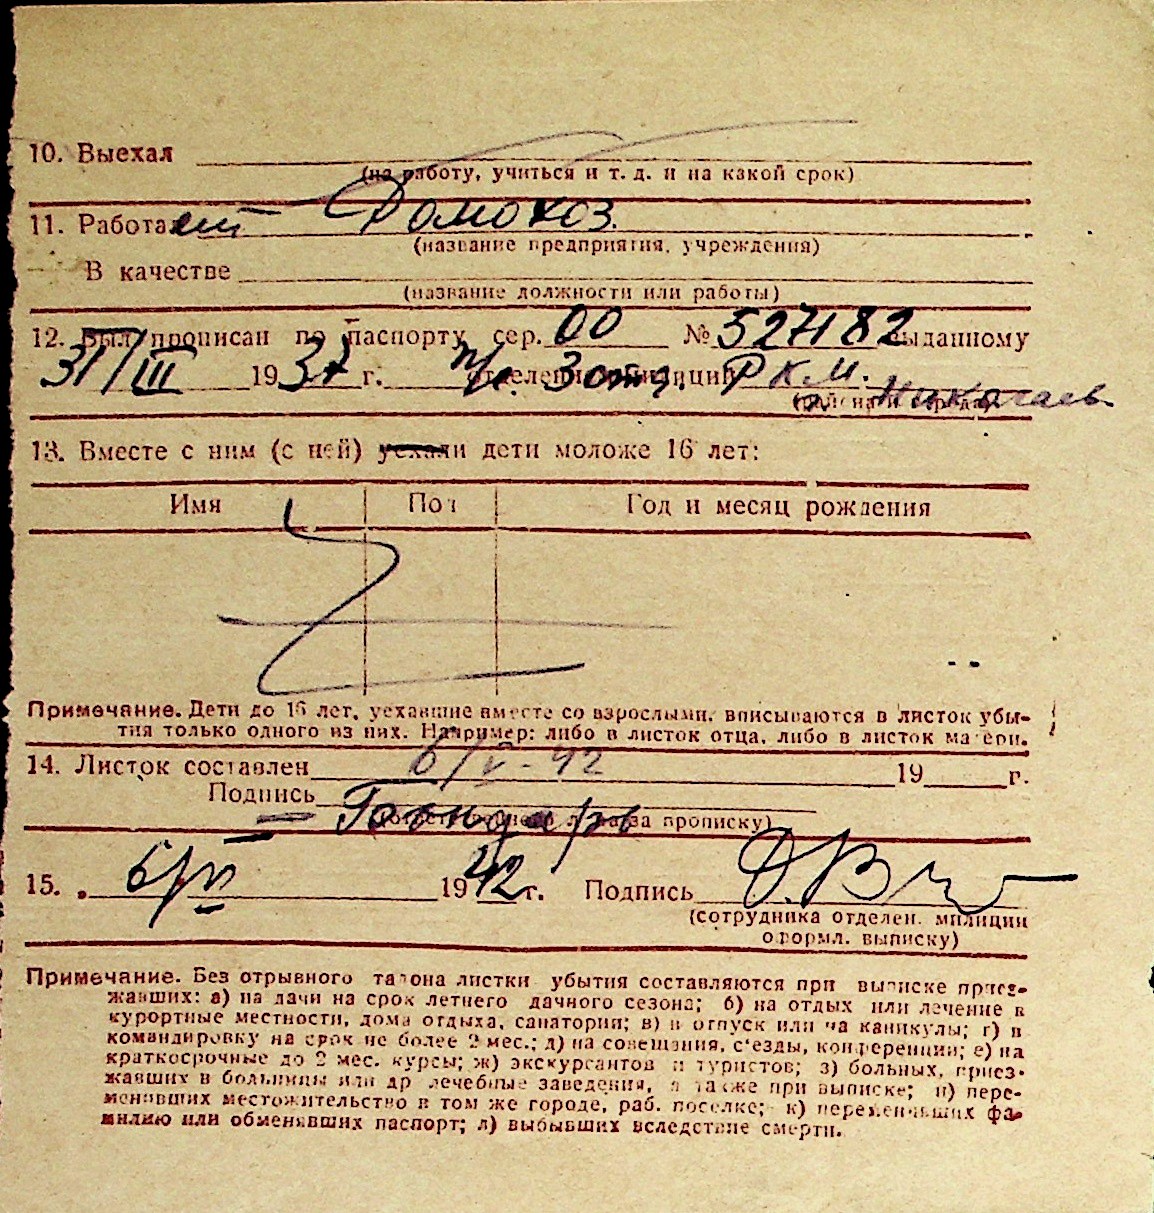 10. Выехал
(на работу, учиться и т. д. и на какой срок)
11. Работает Домохоз.
(название предприятия, учреждения)
В качестве
(название должности или работы)
12. Был прописан по паспорту сер. 00 № 527182 выданному
31/III 1937 г. 3 отд. милиции Р.К.М. Николаев
(района и города)
13. Вместе с ним (с ней) уехали дети моложе 16 лет:
Имя Пол Год и месяц рождения
Примечание. Дети до 16 лет, уехавшие вместе со взрослыми, вписываются в листок убы-
тия только одного из них. Например: либо в листок отца, либо в листок матери.
14. Листок составлен 6/V-42 19 г.
Подпись
(ответственного лица за прописку)
15. 6/VI 1942 г. Подпись
(сотрудника отделен. милиции
оформл. выписку)
Примечание. Без отрывного талона листки убытия составляются при выписке приез-
жавших: а) на дачи на срок летнего дачного сезона; б) на отдых или лечение в
курортные местности, дома отдыха, санатории; в) в отпуск или на каникулы; г) в
командировку на срок не более 2 мес.; д) на совещания, с'езды, конференции; е) на
краткосрочные до 2 мес. курсы; ж) экскурсантов и туристов; з) больных, приез-
жавших в больницы или др лечебные заведения, а также при выписке; и) пере-
менивших местожительство в том же городе, раб. поселке; к) переменивших фа-
милию или обменявших паспорт; л) выбывших вследствие смерти.